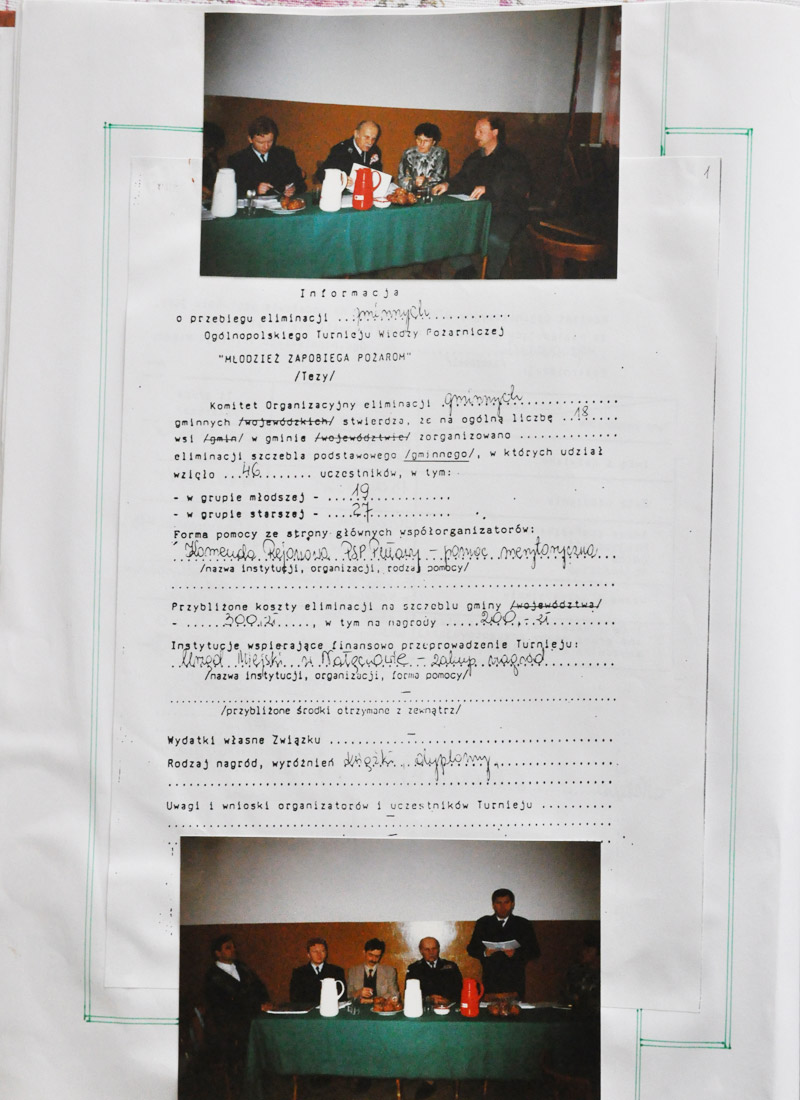 1
Informacja
o przebiegu eliminacji ...gminnych............
Ogólnopolskiego Turnieju Wiedzy Pożarniczej
"MŁODZIEŻ ZAPOBIEGA POŻAROM"
/Tezy/
Komitet Organizacyjny eliminacji .gminnych..............
gminnych /województkich/ stwierdza, że na ogólną liczbę ..18....
wsi /gmin/ w gminie /województwie/ zorganizowano ..............
eliminacji szczebla podstawowego /gminnego/, w których udział
wzięło ...46........ uczestników, w tym:
- w grupie młodszej - ....19............
- w grupie starszej - ....27............
Forma pomocy ze strony głównych współorganizatorów:
Komenda Rejonowa PSP Puławy - pomoc merytoryczna...
/nazwa instytucji, organizacji, rodzaj pomocy/
Przybliżone koszty eliminacji na szczeblu gminy /województwa/
- .....300.zł....., w tym na nagrody .....200,- zł.........
Instytucje wspierające finansowo przeprowadzenie Turnieju:
Urząd Miejski w Nałęczowie - zakup nagród
/nazwa instytucji, organizacji, forma pomocy/
–
/przybliżone środki otrzymane z zewnątrz/
Wydatki własne Związku ..........–..........................
Rodzaj nagród, wyróżnień książki, dyplomy.................
Uwagi i wnioski organizatorów i uczestników Turnieju ..........
–
–